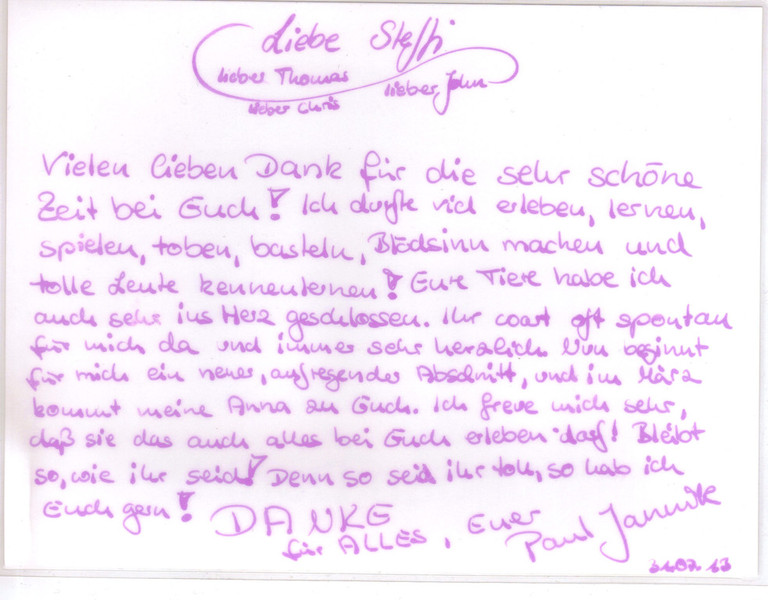 Liebe Steffi
lieber Thomas
lieber John
lieber Chris
Vielen lieben Dank für die sehr schöne
Zeit bei Euch! Ich durfte viel erleben, lernen,
spielen, toben, basteln, Blödsinn machen und
tolle Leute kennenlernen! Eure Tiere habe ich
auch sehr ins Herz geschlossen. Ihr wart oft spontan
für mich da und immer sehr herzlich. Nun beginnt
für mich ein neuer, aufregender Abschnitt, und im März
kommt meine Anna zu Euch. Ich freue mich sehr,
daß sie das auch alles bei Euch erleben darf! Bleibt
so, wie ihr seid! Denn so seid ihr toll, so hab ich
Euch gern! DANKE
für ALLES, Euer
Paul Jannik
31.07.13